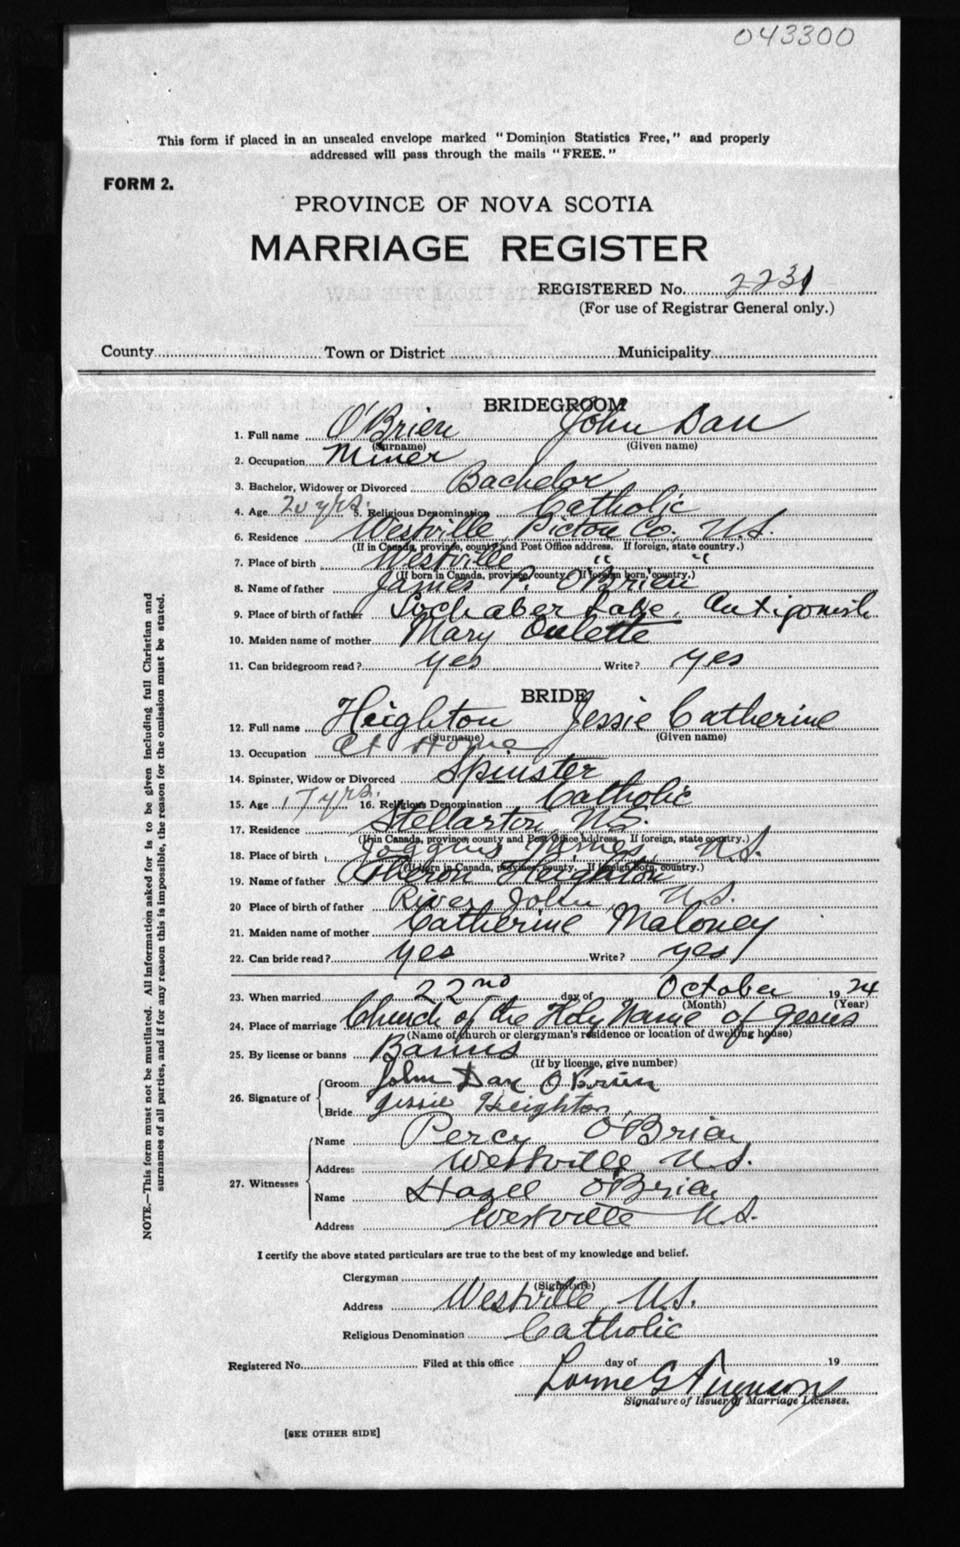 043300
This form if placed in an unsealed envelope marked "Dominion Statistics Free," and properly
addressed will pass through the mails "FREE."
FORM 2.
PROVINCE OF NOVA SCOTIA
MARRIAGE REGISTER
REGISTERED No. 2231
(For use of Registrar General only.)
County Town or District Municipality
BRIDEGROOM
1. Full name O'Brien John Dan
(Surname) (Given name)
2. Occupation Miner
3. Bachelor, Widower or Divorced Bachelor
4. Age 20 yrs. 5. Religious Denomination Catholic
6. Residence Westville Pictou Co. N.S.
(If in Canada, province, county and Post Office address. If foreign, state country.)
7. Place of birth Westville " "
(If born in Canada, province, county. If foreign born, country.)
8. Name of father James P. O'Brien
9. Place of birth of father Lochaber Lake, Antigonish
10. Maiden name of mother Mary Oulette
11. Can bridegroom read? yes Write? yes
BRIDE
12. Full name Heighton Jessie Catherine
(Surname) (Given name)
13. Occupation At Home
14. Spinster, Widow or Divorced Spinster
15. Age 17 yrs. 16. Religious Denomination Catholic
17. Residence Stellarton N.S.
(If in Canada, province, county and Post Office address. If foreign, state country.)
18. Place of birth Joggins Mines N.S.
(If born in Canada, province, county. If foreign born, country.)
19. Name of father Heighton
20 Place of father River John, N.S.
21. Maiden name of mother Catherine Maloney
22. Can bride read? yes Write? yes
23. When married 22nd day of October 1924
(Month) (Year)
24. Place of marriage Church of the Holy Name of Jesus
(Name of church or clergyman's residence or location of dwelling house)
25. By license or banns Banns
(If by license, give number)
26. Signature of Groom John Dan O'Brien
Bride Jessie Heighton
27. Witnesses Name Percy O'Brien
Address Westville N.S.
Name Hazel O'Brien
Address Westville N.S.
I certify the above stated particulars are true to the best of my knowledge and belief.
Clergyman
(Signature)
Address Westville, N.S.
Religious Denomination Catholic
Registered No. Filed at this office day of 19
Lorne G Ferguson
Signature of Issuer of Marriage Licenses.
[SEE OTHER SIDE]
NOTE.—This form must not be mutilated. All information asked for is to be given including full Christian and
surnames of all parties, and if for any reason this is impossible, the reason for the omission must be stated.